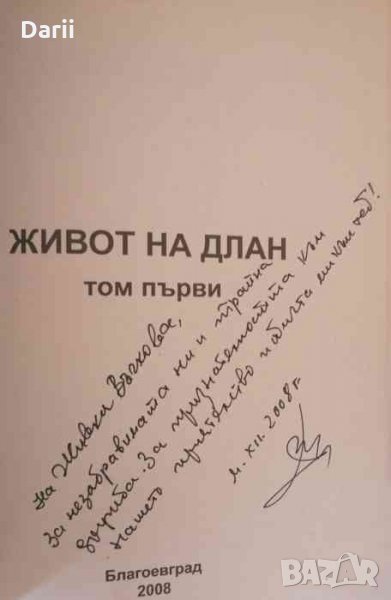 Darii
ЖИВОТ НА ДЛАН
том първи
на Живка Вълкова,
за незабравимата ни и трайна
дружба. За признателността към
нашето приятелство и обичта ми към теб!
м. XII. 2008 г.
Благоевград
2008
BAZAR
bg